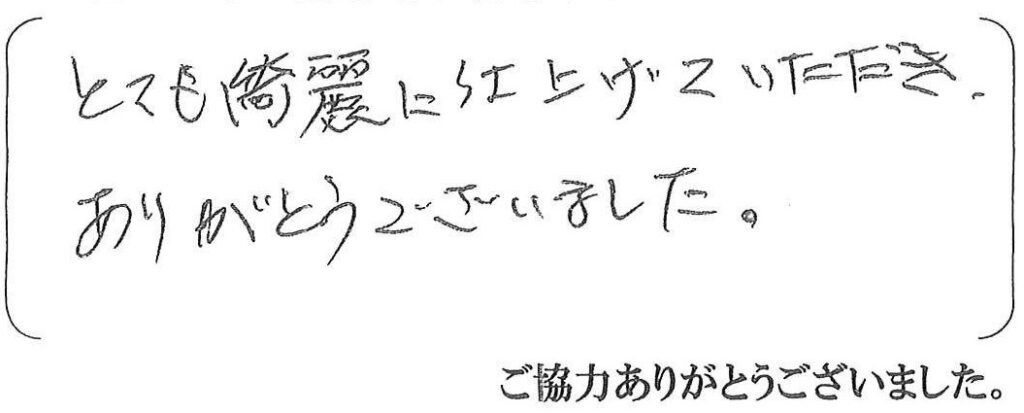 とても綺麗に仕上げていただき、
ありがとうございました。
ご協力ありがとうございました。